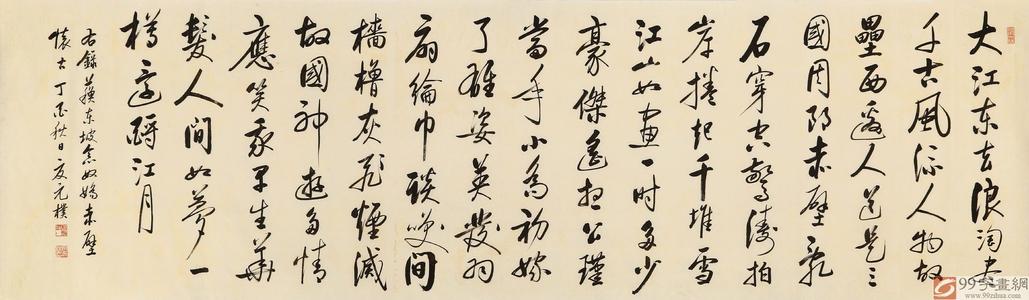 大江东去浪淘尽
千古风流人物故
壘西邊人道是三
國周郎赤壁乱
石穿空驚濤拍
岸捲起千堆雪
江山如畫一時多少
豪傑遙想公瑾
當年小喬初嫁
了雄姿英發羽
扇綸巾談笑間
檣櫓灰飛煙滅
故國神遊多情
應笑我早生華
髮人間如夢一
樽還酹江月
右錄蘇东坡念奴嬌赤壁
懷古丁酉秋日友元樸
99字畫網
www.99zihua.com